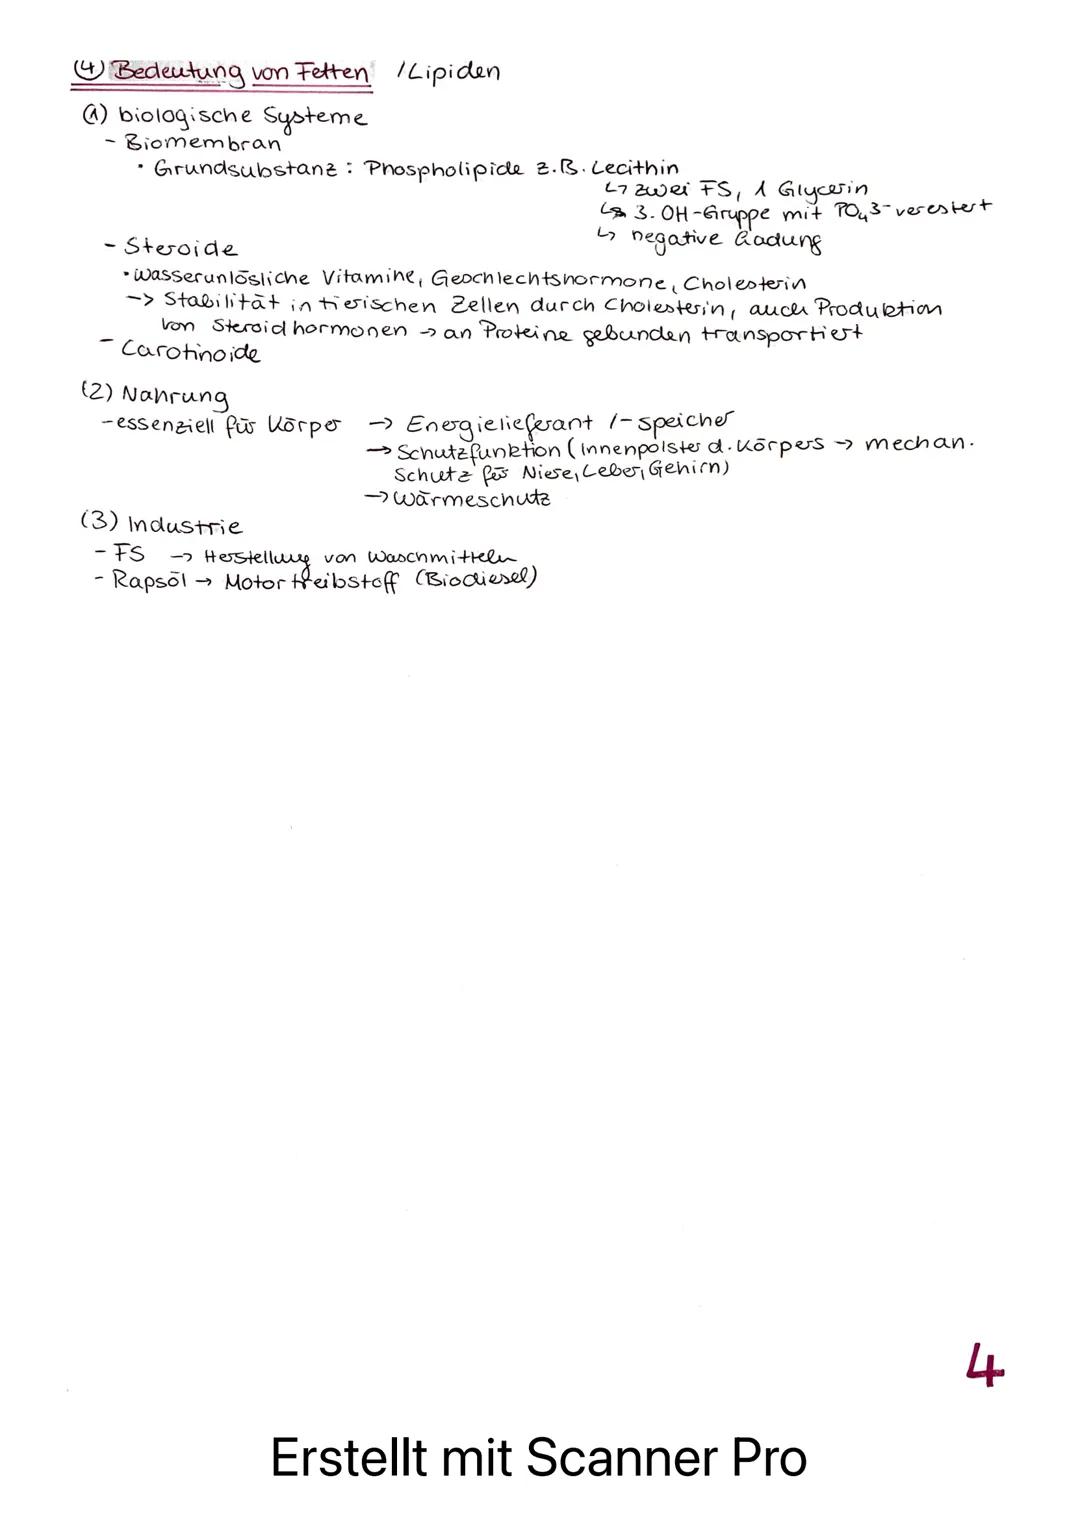 (4) Bedeutung von Fetten / Lipiden
(1) biologische Systeme
- Biomembran
• Grundsubstanz : Phospholipide z.B. Lecithin
↳ zwei FS, 1 Glycerin
↳ 3. OH-Gruppe mit PO₄³⁻ verestert
↳ negative Ladung
- Steroide
• wasserunlösliche Vitamine, Geschlechtshormone, Cholesterin
-> Stabilität in tierischen Zellen durch Cholesterin, auch Produktion
von Steroidhormonen → an Proteine gebunden transportiert
- Carotinoide
(2) Nahrung
- essenziell für Körper → Energielieferant /-speicher
→ Schutzfunktion (Innenpolster d. Körpers → mechan.
Schutz für Niere, Leber, Gehirn)
→ Wärmeschutz
(3) Industrie
- FS → Herstellung von Waschmitteln
- Rapsöl → Motortreibstoff (Biodiesel)
4
Erstellt mit Scanner Pro